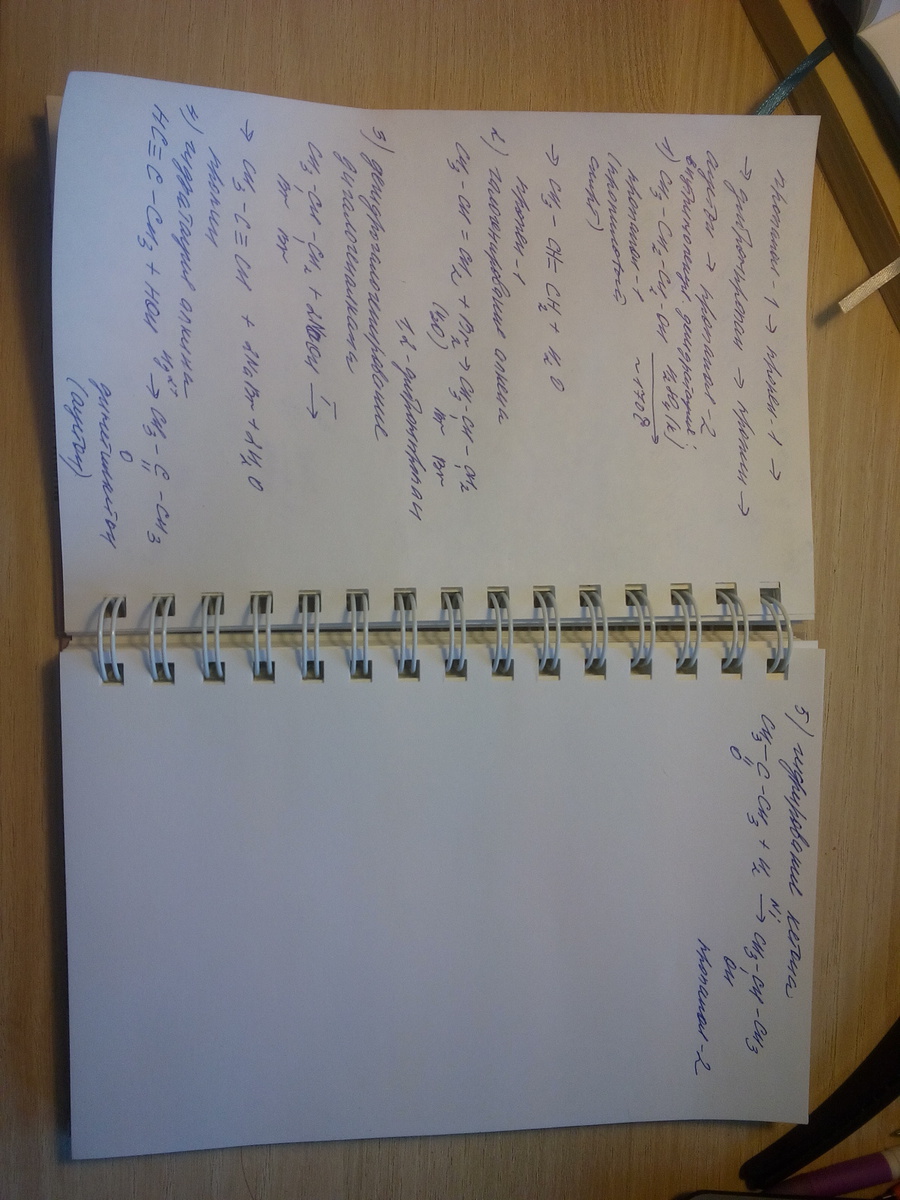 пропанол-1 → пропен-1 →
→ дибромпропан → пропин →
ацетон → пропанол-2
внутримолекул. дегидратация
1) CH₃ - CH₂ - CH₂ - OH H₂SO₄(к) ⟶ ~170°
пропанол-1
(пропиловый
спирт)
→ CH₃ - CH = CH₂ + H₂O
пропен-1
2) галогенирование алкена
CH₃ - CH = CH₂ + Br₂ → CH₃ - CH - CH₂
(H₂O) Br Br
1,2-дибромпропан
3) дегидрогалогенирование
дигалогеналкана
CH₃ - CH - CH₂ + 2NaOH T⟶
Br Br
→ CH₃ - C ≡ CH + 2NaBr + 2H₂O
пропин
4) гидратация алкина
HC ≡ C - CH₃ + HOH Hg²⁺→ CH₃ - C - CH₃
O
диметилкетон
(ацетон)
5) гидрирование кетона
CH₃ - C - CH₃ + H₂ Ni⟶ CH₃ - CH - CH₃
O OH
пропанол-2